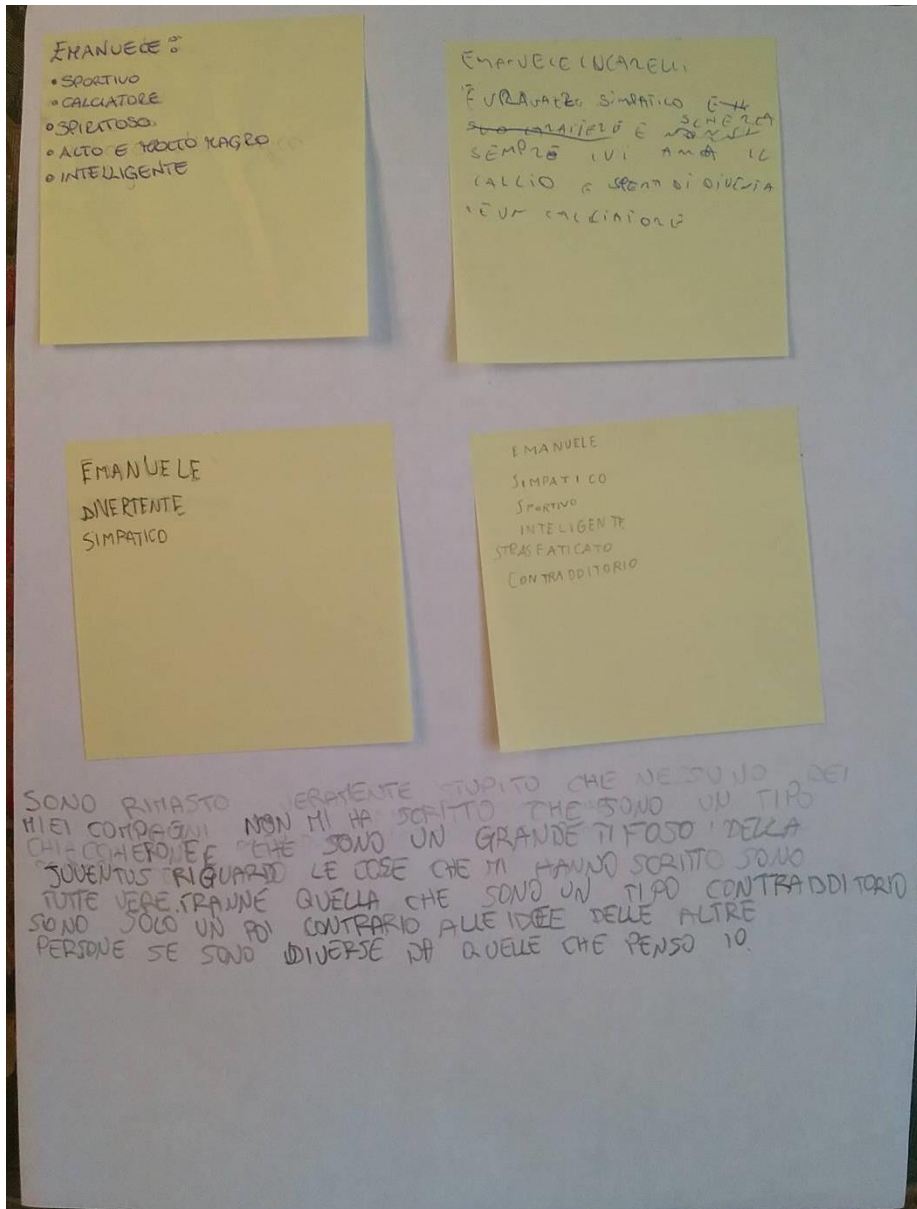 EMANUELE:
• SPORTIVO
• CALCIATORE
• SPIRITOSO
• ALTO E MOLTO MAGRO
• INTELLIGENTE
EMANUELE
È UN RAGAZZO SIMPATICO E
SUO CARATTERE È SCHERZA
SEMPRE LUI AMA IL
CALCIO E
È UN CALCIATORE
EMANUELE
DIVERTENTE
SIMPATICO
EMANUELE
SIMPATICO
SPORTIVO
INTELIGENTE
STRASFATICATO
CONTRADDITORIO
SONO RIMASTO VERAMENTE STUPITO CHE NESSUNO DEI
MIEI COMPAGNI NON MI HA SCRITTO CHE SONO UN TIPO
CHIACCHERONE E CHE SONO UN GRANDE TIFOSO DELLA
JUVENTUS RIGUARDO LE COSE CHE MI HANNO SCRITTO SONO
TUTTE VERE TRANNE QUELLA CHE SONO UN TIPO CONTRADDITORIO
SONO SOLO UN PO' CONTRARIO ALLE IDEE DELLE ALTRE
PERSONE SE SONO DIVERSE DA QUELLE CHE PENSO IO.